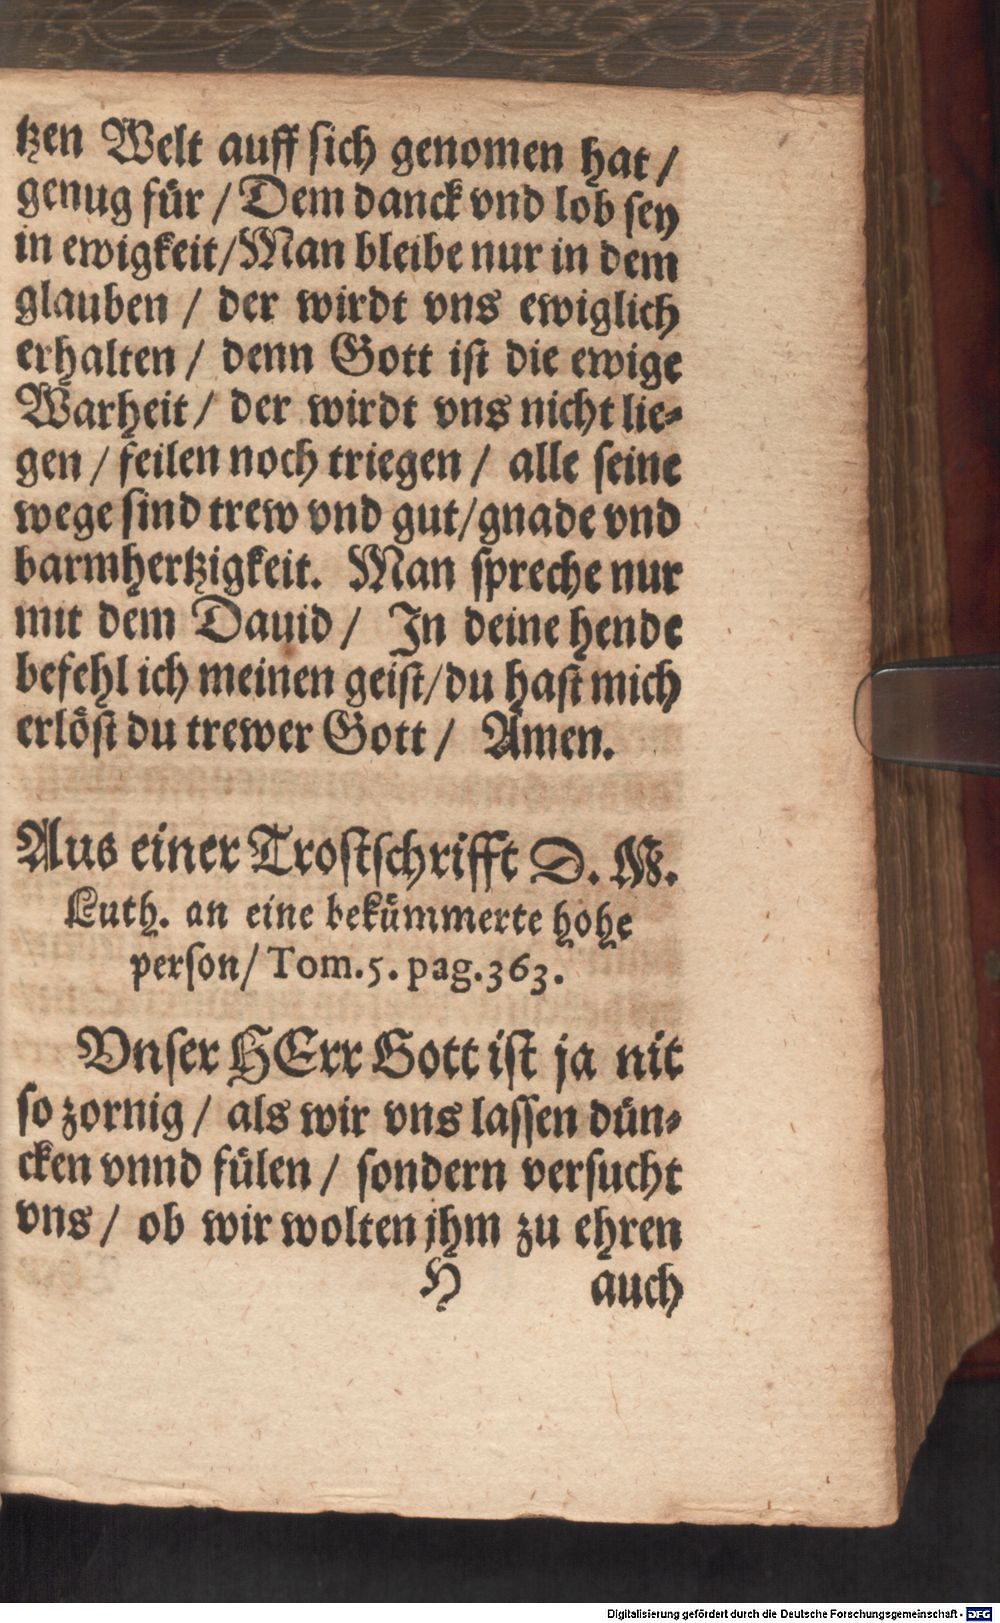 tzen Welt auff sich genomen hat /
genug für / Dem danck vnd lob sey
in ewigkeit / Man bleibe nur in dem
glauben / der wirdt vns ewiglich
erhalten / denn Gott ist die ewige
Warheit / der wirdt vns nicht lie-
gen / feilen noch triegen / alle seine
wege sind trew vnd gut / gnade vnd
barmhertzigkeit. Man spreche nur
mit dem Dauid / In deine hende
befehl ich meinen geist / du hast mich
erlöst du trewer Gott / Amen.
Aus einer Trostschrifft D. M.
Luth. an eine bekümmerte hohe
person / Tom. 5. pag. 363.
Vnser HErr Gott ist ja nit
so zornig / als wir vns lassen dün-
cken vnnd fülen / sondern versucht
vns / ob wir wolten jhm zu ehren
H auch
Digitalisierung gefördert durch die Deutsche Forschungsgemeinschaft - DFG